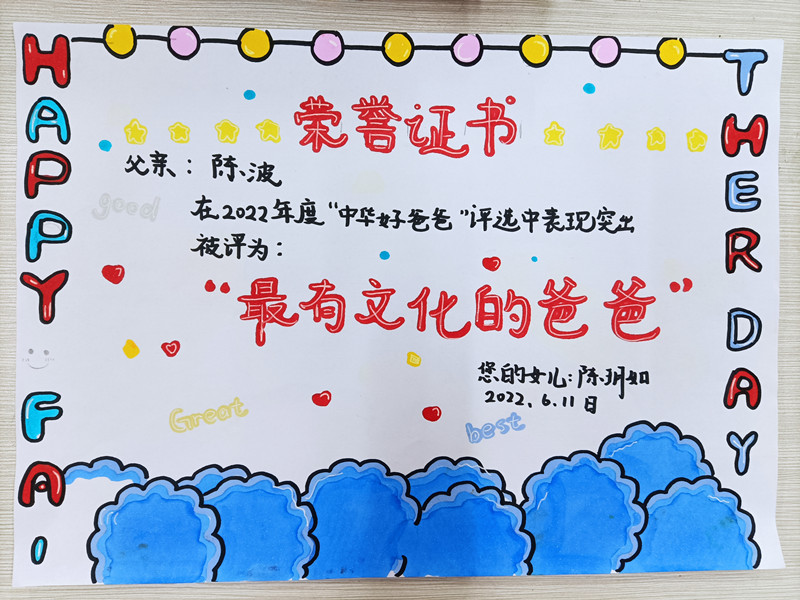 HAPPY FAI
THER DAY
荣誉证书
父亲：陈波
good
在2022年度“中华好爸爸”评选中表现突出
被评为：
“最有文化的爸爸”
您的女儿：陈玥如
2022.6.11日
Great
best